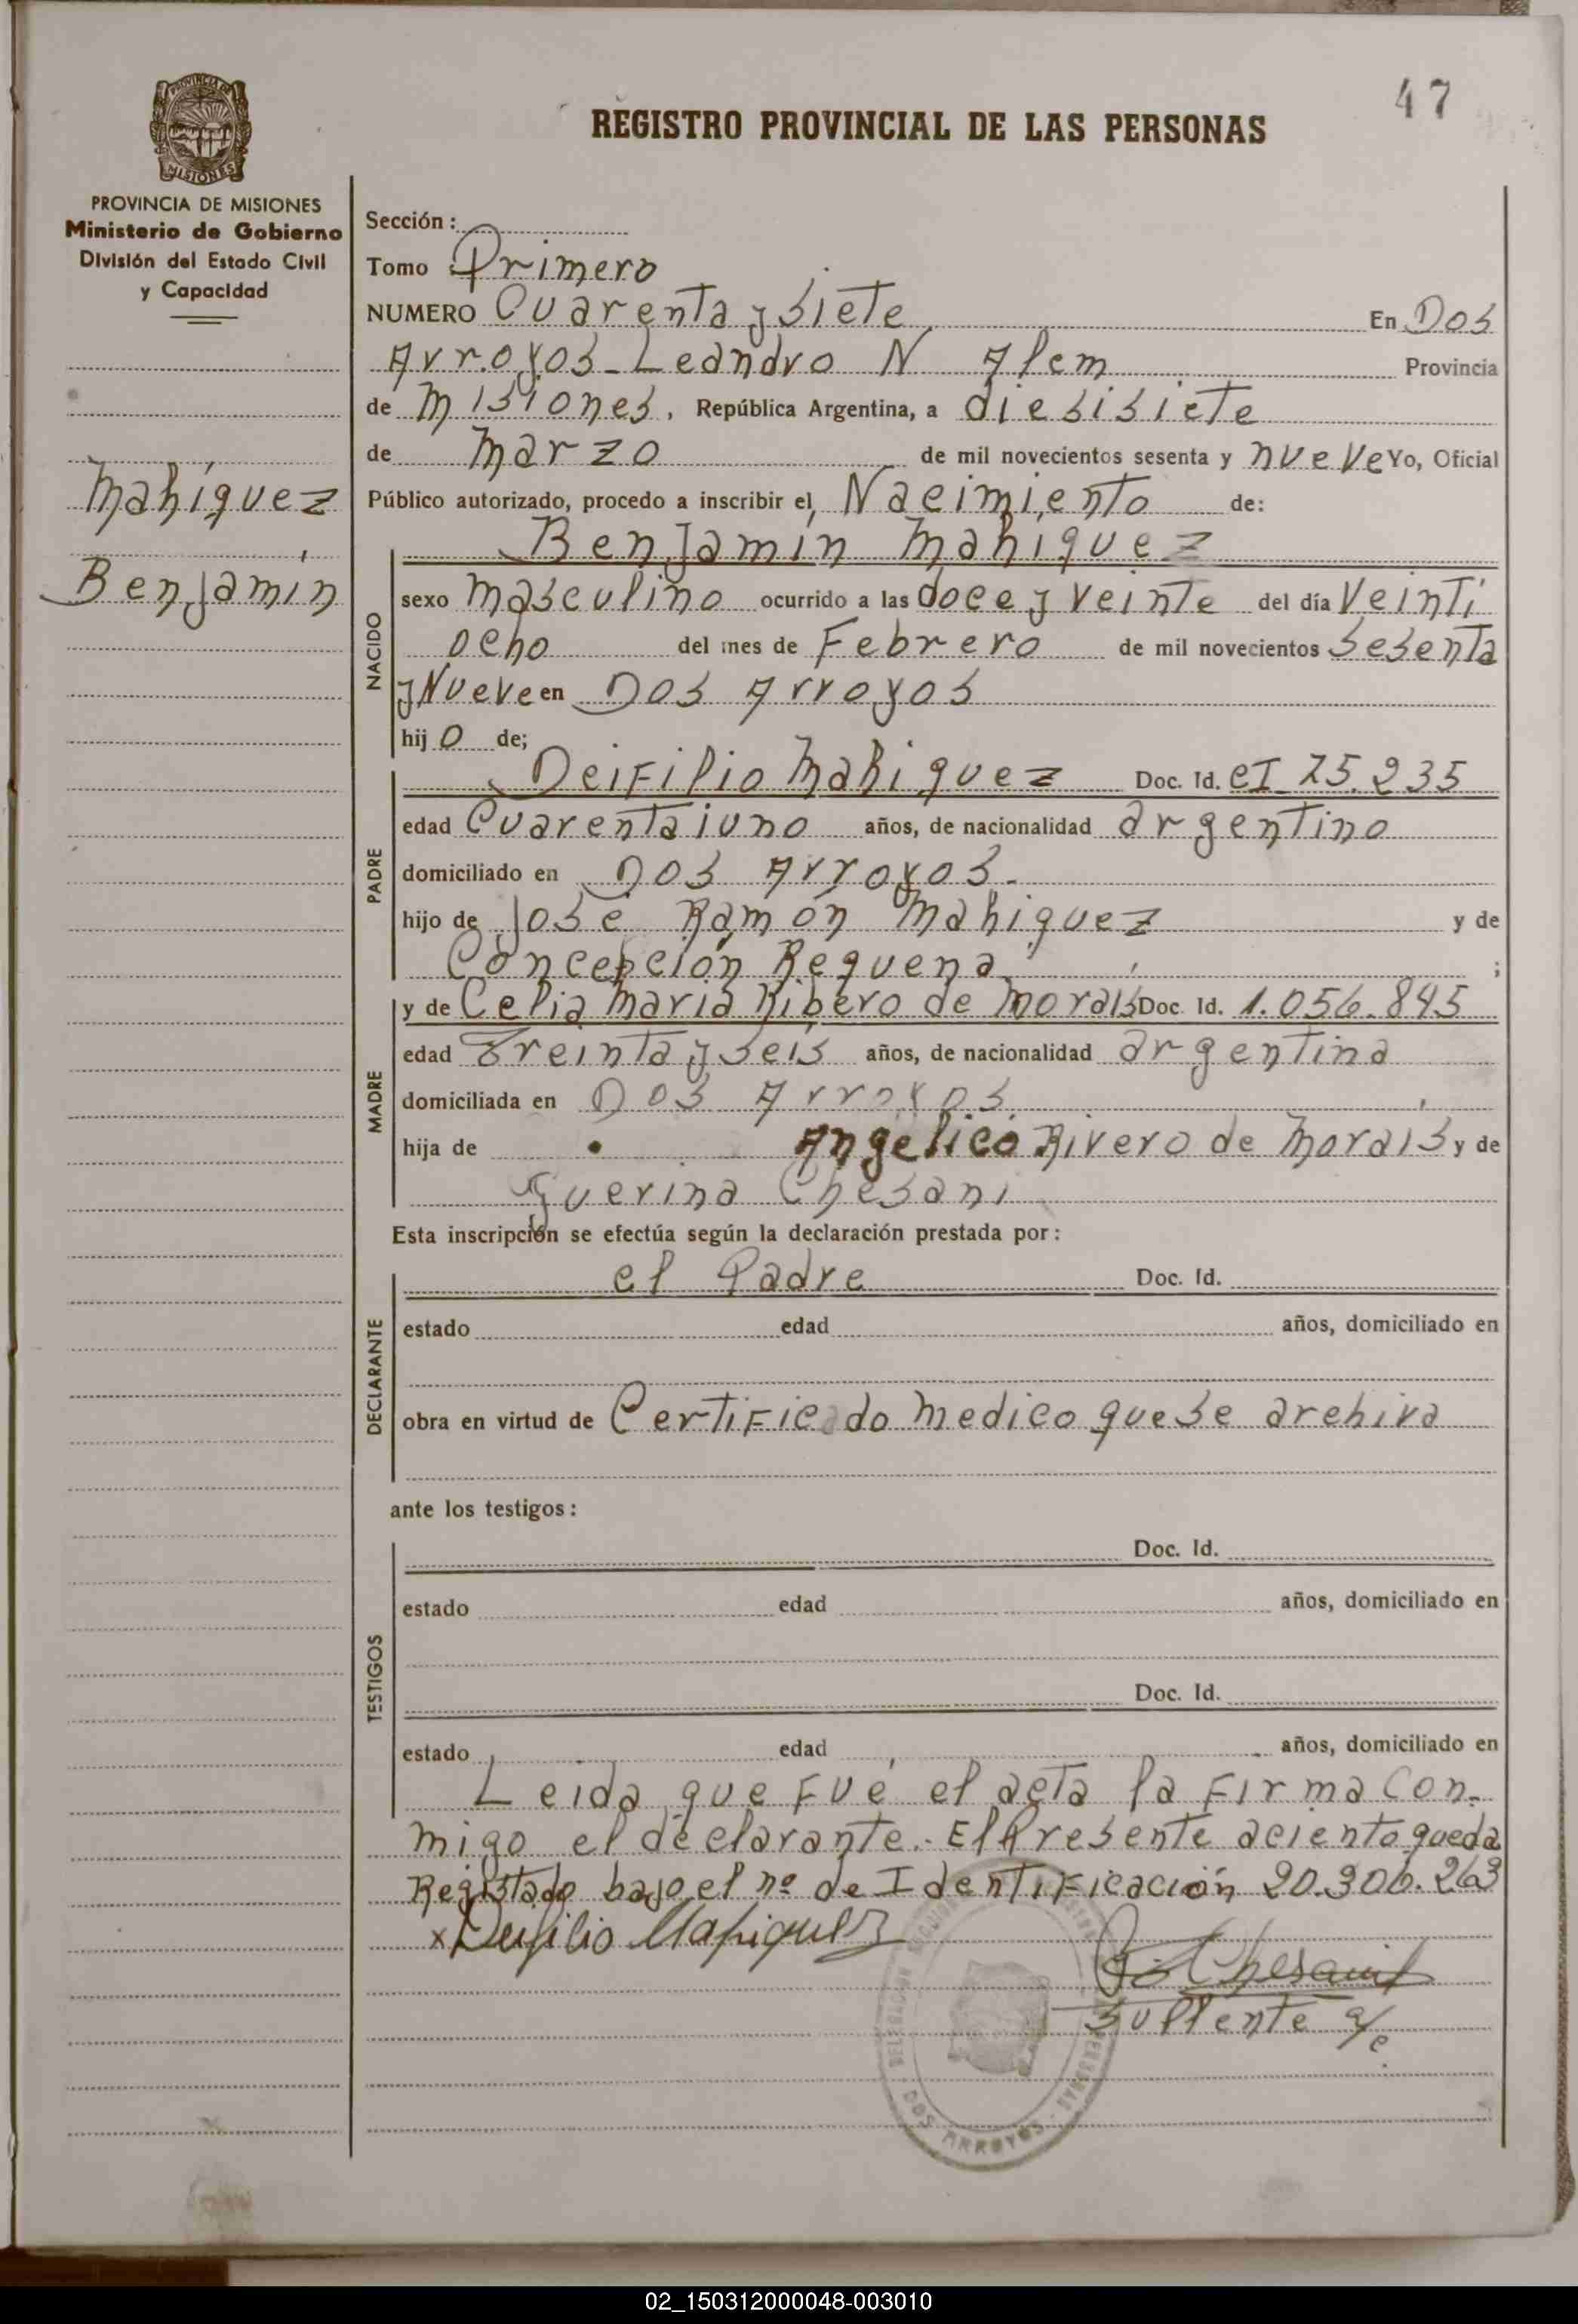 47
REGISTRO PROVINCIAL DE LAS PERSONAS
PROVINCIA DE MISIONES
Ministerio de Gobierno
División del Estado Civil
y Capacidad
Mahíquez
Benjamín
Sección:
Tomo Primero
NUMERO Cuarenta y Siete En Dos
Arroyos - Leandro N Alem Provincia
de Misiones, República Argentina, a diesisiete
de Marzo de mil novecientos sesenta y nueve Yo, Oficial
Público autorizado, procedo a inscribir el, Nacimiento de:
NACIDO
Benjamín Mahiquez
sexo Masculino ocurrido a las doce y Veinte del día Veinti
ocho del mes de Febrero de mil novecientos Sesenta
y Nueve en Dos Arroyos
hij o de;
PADRE
Deifilio Mahiquez Doc. Id. CI 75.235
edad Cuarentaiuno años, de nacionalidad argentino
domiciliado en Dos Arroyos.
hijo de José Ramón Mahiquez y de
Concepción Requena ;
MADRE
y de Celia María Ribero de Morais Doc. Id. 1.056.845
edad Treinta y Seis años, de nacionalidad argentina
domiciliada en Dos Arroyos
hija de Angélico Rivero de Morais y de
Guerina Chesani
Esta inscripción se efectúa según la declaración prestada por:
DECLARANTE
el Padre Doc. Id.
estado edad años, domiciliado en
obra en virtud de Certificado Medico que se archiva
ante los testigos:
TESTIGOS
Doc. Id.
estado edad años, domiciliado en
Doc. Id.
estado edad años, domiciliado en
Leída que Fué el acta la Firma Con-
migo el declarante. El Presente aciento queda
Registado bajo el nº de Identificación 20.306.263
x Deifilio Mahiquez
Chesani
Suplente a/c.
DOS ARROYOS
02_150312000048-003010